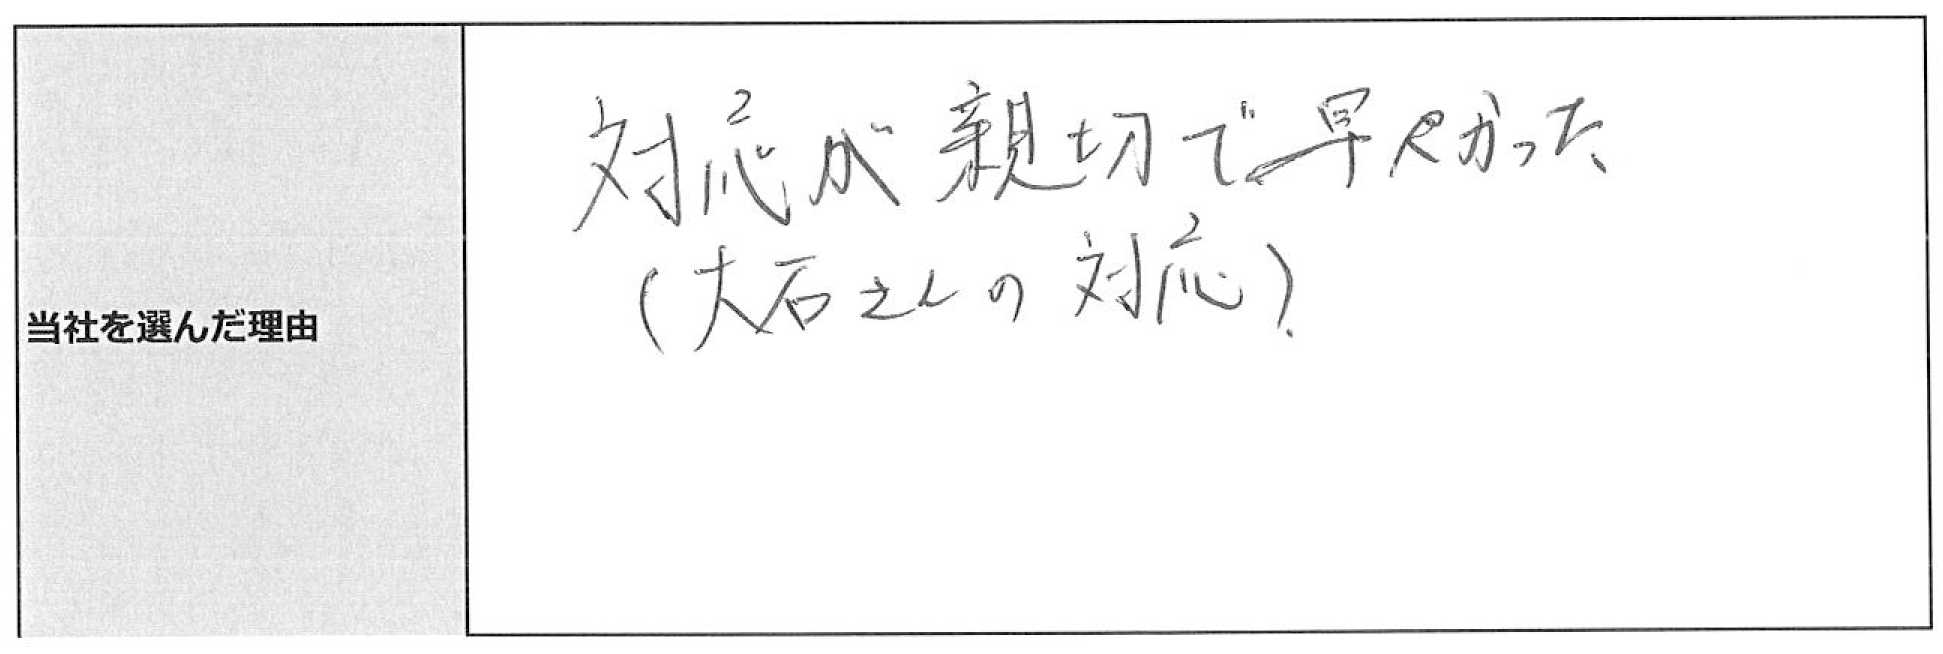 当社を選んだ理由
対応が親切で早くかった
(大石さんの対応)